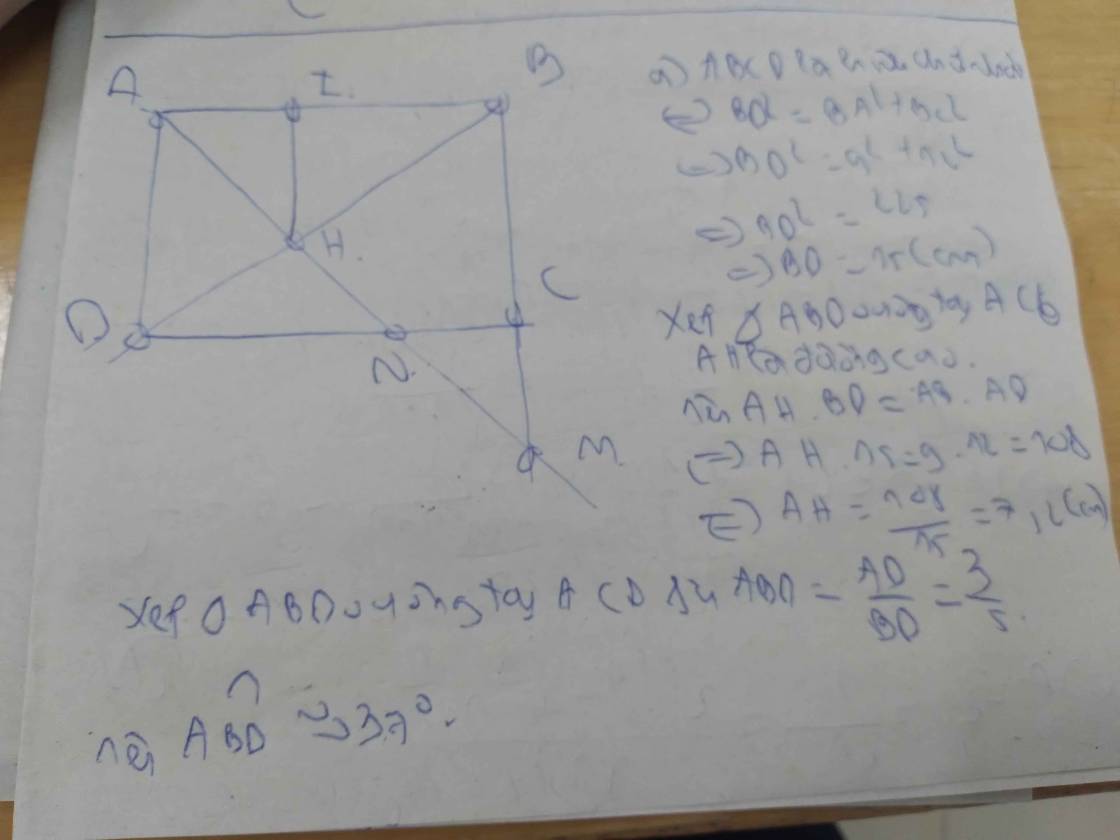 A I. B
H.
D C
N.
M
a) ABCD là hình chữ nhật
⇔ BD² = BA² + BC²
⇔ BD² = 9² + 12²
⇒ BD² = 225
⇒ BD = 15 (cm)
Xét Δ ABD vuông tại A có
AH là đường cao.
nên AH . BD = AB . AD
⇔ AH . 15 = 9 . 12 = 108
⇔ AH = 108/15 = 7,2 (cm)
Xét Δ ABD vuông tại A có sin ABD = AD/BD = 3/5.
nên ABD ≈ 37°.